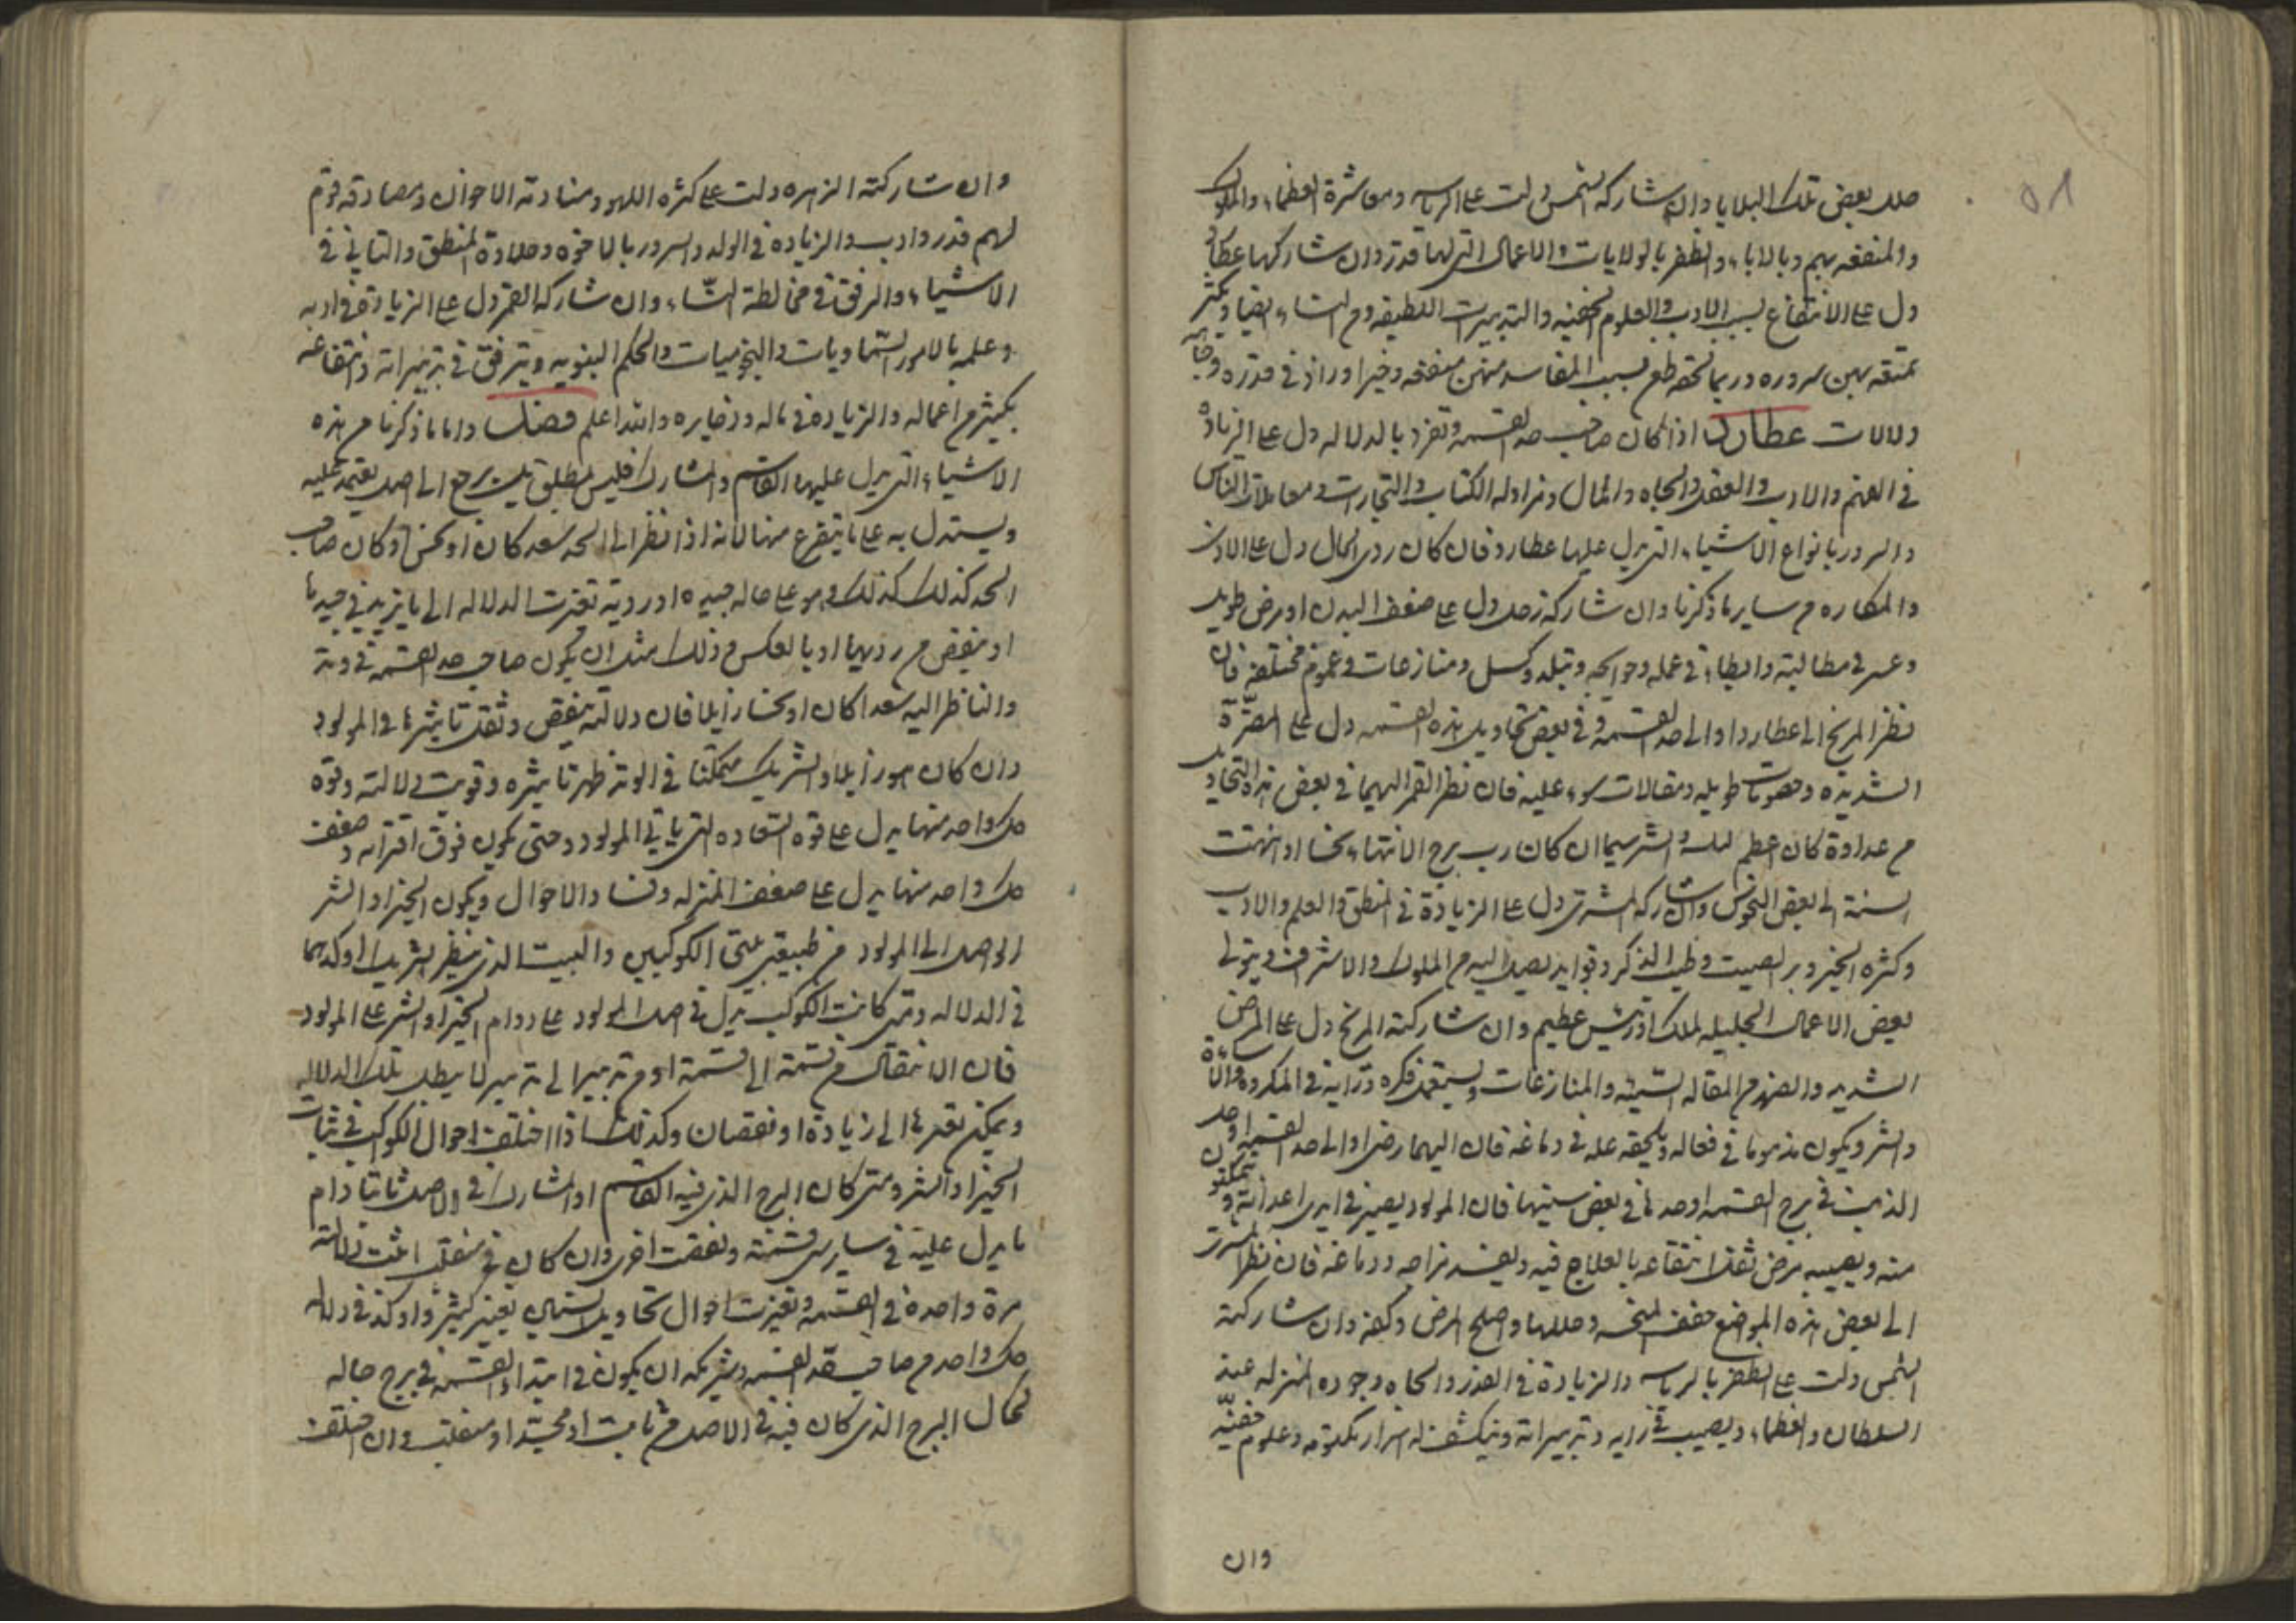 ٥١
حلل بعض تلك البلايا وان شاركه الشمس دلت على الرياسه ومعاشرة العظماء والملوك
والمنفعه بهم وبالاباء والظفر بالولايات والاعمال التى لها قدر وان شاركها عطارد
دل على الانتفاع بسبب الادب والعلوم الخفيه والتدبيرات اللطيفه وم النساء ايضا ويكثر
تمتعه بهن وسروره وربما لحقه طمع بسبب المقاسد منهن منفعه وخيرا وزاد فى قدره وجاهه
دلالات عطارد اذا كان صاحب حد القسمه وتفرد بالدلاله دل على الزيادة
فى الفهم والادب والعقل والجاه والمال ومزاوله الكتاب والتجارات ومعاملات الناس
والسرور بانواع الاشياء التى يدل عليها عطارد فان كان ردى الحال دل على الاذى
والمكاره م ساير ما ذكرنا وان شاركه زحل دل على ضعف البدن او مرض طويل
وعسر فى مطالبته وابطاء فى عمله وحوايجه وتبلد وكسل ومنازعات وغموم مختلفه فان
نظر المريخ الى عطارد او الى حد القسمه وفى بعض تحاويل هذه القسمه دل على المضرة
الشديده وخصومات طويله ومقالات سوء عليه فان نظر القمر اليهما فى بعض هذه التحاويل
م عداوة كان اعظم لذلك الشر سيما ان كان رب برج الانتهاء نحسا او انتهت
السنة الى بعض النحوس وان شاركه المشترى دل على الزيادة فى المنطق والعلم والادب
وكثره الخير وبر الصيت وطيب الذكر وفوايد يصل اليه م الملوك والاشراف ويتولى
بعض الاعمال الجليله لملك او رئيس عظيم وان شاركته المريخ دل على المرض
الشديد والضرر م المقاله السيئه والمنازعات ويستعمل فكره ورايه فى المكروه والاساءة
والشر ويكون مذموما فى فعاله ويلحقه عله فى دماغه فان اليهما رضى او الى حد القسمه او حل
الذنب فى برج القسمه او حدها فى بعض سنيها فان المولود يصير فى ايدى اعدائه ويتمكنون
منه ويصيبه مرض ثقل انتفاعه بالعلاج فيه ويفسد مزاجه ودماغه فان نظر المشترى
الى بعض هذه المواضع خفف المنحسه وحللها واصلح المرض وكفه وان شاركته
الشمس دلت على الظفر بالرياسه والزيادة فى القدر والجاه وجوده المنزله عند
السلطان والعظماء ويصيب فى رايه وتدبيراته وينكشف له اسرار مكتومه وعلوم خفيه
وان
وان شاركته الزهره دلت على كثره اللهو ومنادمته الاخوان ومصادقه قوم
لهم قدر وادب والزياده فى الولد والسرور بالاخوه وحلاوة المنطق والتانى فى
الاشياء والرفق فى مخالطة النساء وان شاركه القمر دل على الزيادة فى ادبه
وعلمه بالامور السماويات والنجوميات والحكم النبويه ويترفق فى تدبيراته وانتفاعه
بكثير م اعماله والزيادة فى ماله وذخايره والله اعلم فصل واما ما ذكرنا م هذه
الاشياء التى يدل عليها القاسم والمشارك فليس بمطلق بل يرجع الى اصل يعتمد عليه
ويستدل به على ما يتفرع منها لانه اذا نظر الى الحد سعد كان او نحس وكان صاحب
الحد كذلك كذلك وهو على حاله جيده او رديه تغيرت الدلاله الى ما يزيد فى جيدها
او ينقص م رديها او بالعكس م ذلك مثل ان يكون صاحب حد القسمه فى وتد
والناظر اليه سعدا كان او نحسا زايلا فان دلالته تنقص وثقل تاثيرها فى المولود
وان كان هو زايلا والشريك متمكنا فى الوتد ظهر تاثيره وقويت دلالته وقوة
كل واحد منهما يدل على قوه السعاده التى ياتى المولود وحتى يكون فوق اقرانه وضعف
كل واحد منهما يدل على ضعف المنزله وفساد الاحوال ويكون الخير او الشر
الواصل الى المولود م طبيعتى الكوكبين والبيت الذى ينظر الشريك او كليهما
فى الدلاله ومتى كانت الكوكب يدل فى اصل المولود على دوام الخير او الشر على المولود
فان الانتقال م قسمة الى قسمة او م تدبير الى تدبير لا يبطل تلك الدلاله
ويمكن تغيرها الى زيادة او نقصان وكذلك اذا اختلفت احوال الكوكب فى ثبات
الخير او الشر ومتى كان البرج الذى فيه القاسم او المشارك فى الاصل ثابتا دام
ما يدل عليه فى ساير سنى قسمته ونقصت اخرى وان كان فى منقلب اثبت دلالته
مرة واحدة فى القسمه وتغيرت احوال تحاويل السنين بغير كثير واوكد فى دلاله
كل واحد م صاحب حد القسمه وشريكه ان يكون فى ابتداء القسمه فى برج حاله
كحال البرج الذى كان فيه فى الاصل م ثابت او مجسد او منقلب وان اختلفت